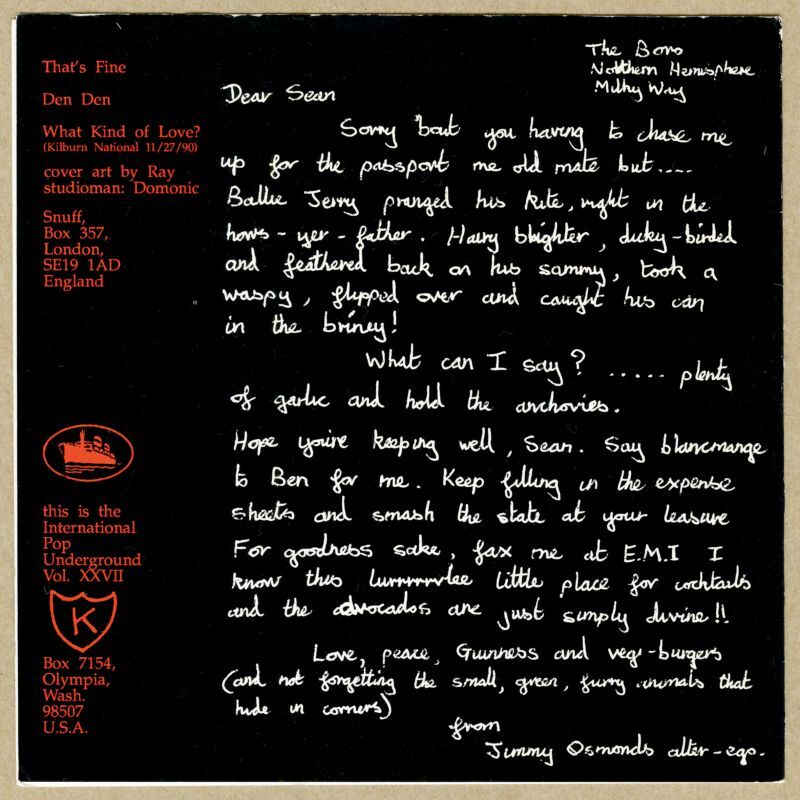 That's Fine
Den Den
What Kind of Love?
(Kilburn National 11/27/90)
cover art by Ray
studioman: Domonic
Snuff,
Box 357,
London,
SE19 1AD
England
this is the
International
Pop
Underground
Vol. XXVII
K
Box 7154,
Olympia,
Wash.
98507
U.S.A.
The Boro
Northern Hemisphere
Milky Way
Dear Sean
Sorry 'bout you having to chase me
up for the passport me old mate but....
Ballie Jerry pranged his kite, right in the
hows-yer-father. Hairy blighter, dicky-birded
and feathered back on his sammy, took a
waspy, flipped over and caught his can
in the briney!
What can I say? ..... plenty
of garlic and hold the anchovies.
Hope you're keeping well, Sean. Say blancmange
to Ben for me. Keep filling in the expense
sheets and smash the state at your leasure
For goodness sake, fax me at E.M.I I
know this lurrrrrrvlee little place for cocktails
and the advocados are just simply divine!!
Love, peace, Guinness and vegi-burgers
(and not forgetting the small, green, furry animals that
hide in corners)
from
Jimmy Osmonds alter-ego.